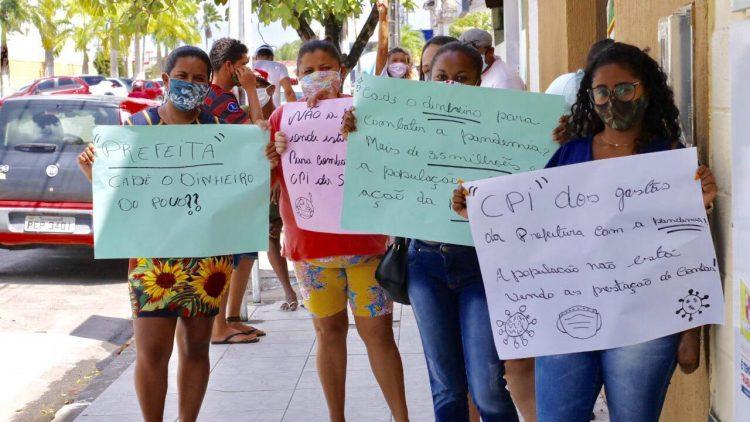 "PREFEITA"
CADÊ O DINHEIRO
DO POVO??
NÃO a
onde está
Para comba
CPI da S
"Cadê o dinheiro para
Combater a pandemia?
Mais de 35 milhões
a população
ação da
"CPI" dos gastos
da Prefeitura com a pandemia!
A população não está
Vendo as prestação de Contas!
PEP 3401